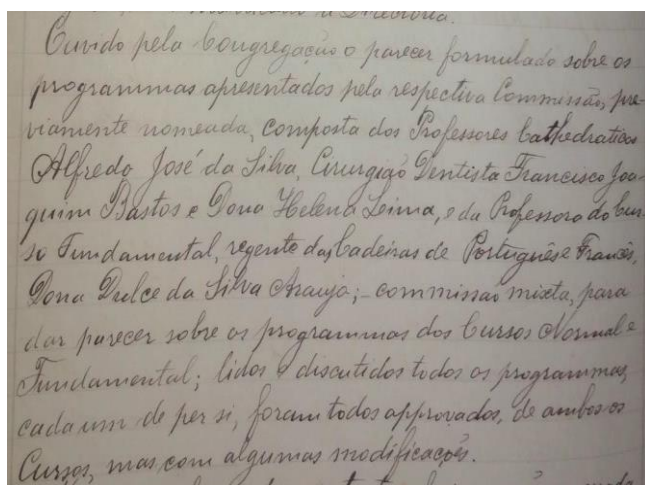 a Directoria.
Ouvido pela Congregação o parecer formulado sobre os
programmas apresentados pela respectiva Commissão, pre-
viamente nomeada, composta dos Professores Cathedraticos
Alfredo José da Silva, Cirurgião Dentista Francisco Joa-
quim Bastos e Dona Helena Leima, e da Professora do Cur-
so Fundamental, regente das Cadeiras de Português e Francês,
Dona Dulce da Silva Araujo; - commissão mixta, para
dar parecer sobre os programmas dos Cursos Normal e
Fundamental; lidos e discutidos todos os programmas,
cada um de per si, foram todos approvados, de ambos os
Cursos, mas com algumas modificações.